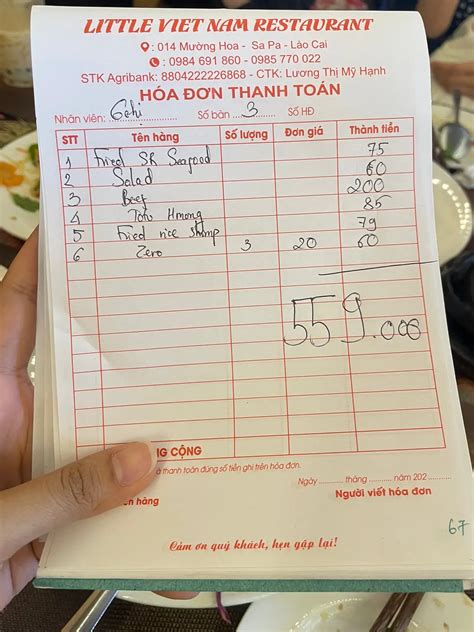 LITTLE VIET NAM RESTAURANT
: 014 Mường Hoa - Sa Pa - Lào Cai
: 0984 691 860 - 0985 770 022
STK Agribank: 8804222226868 - CTK: Lương Thị Mỹ Hạnh
HÓA ĐƠN THANH TOÁN
Nhân viên: Số bàn 3 Số HĐ
STT Tên hàng Số lượng Đơn giá Thành tiền
1 Fried SR Seafood 75
2 Salad 60
3 Beef 200
4 Tofu Hmong 85
5 Fried rice shrimp 79
6 Zero 3 20 60
559.000
NG CỘNG
thanh toán đúng số tiền ghi trên hóa đơn.
Ngày tháng năm 202
n hàng Người viết hóa đơn
Cảm ơn quý khách, hẹn gặp lại!
67